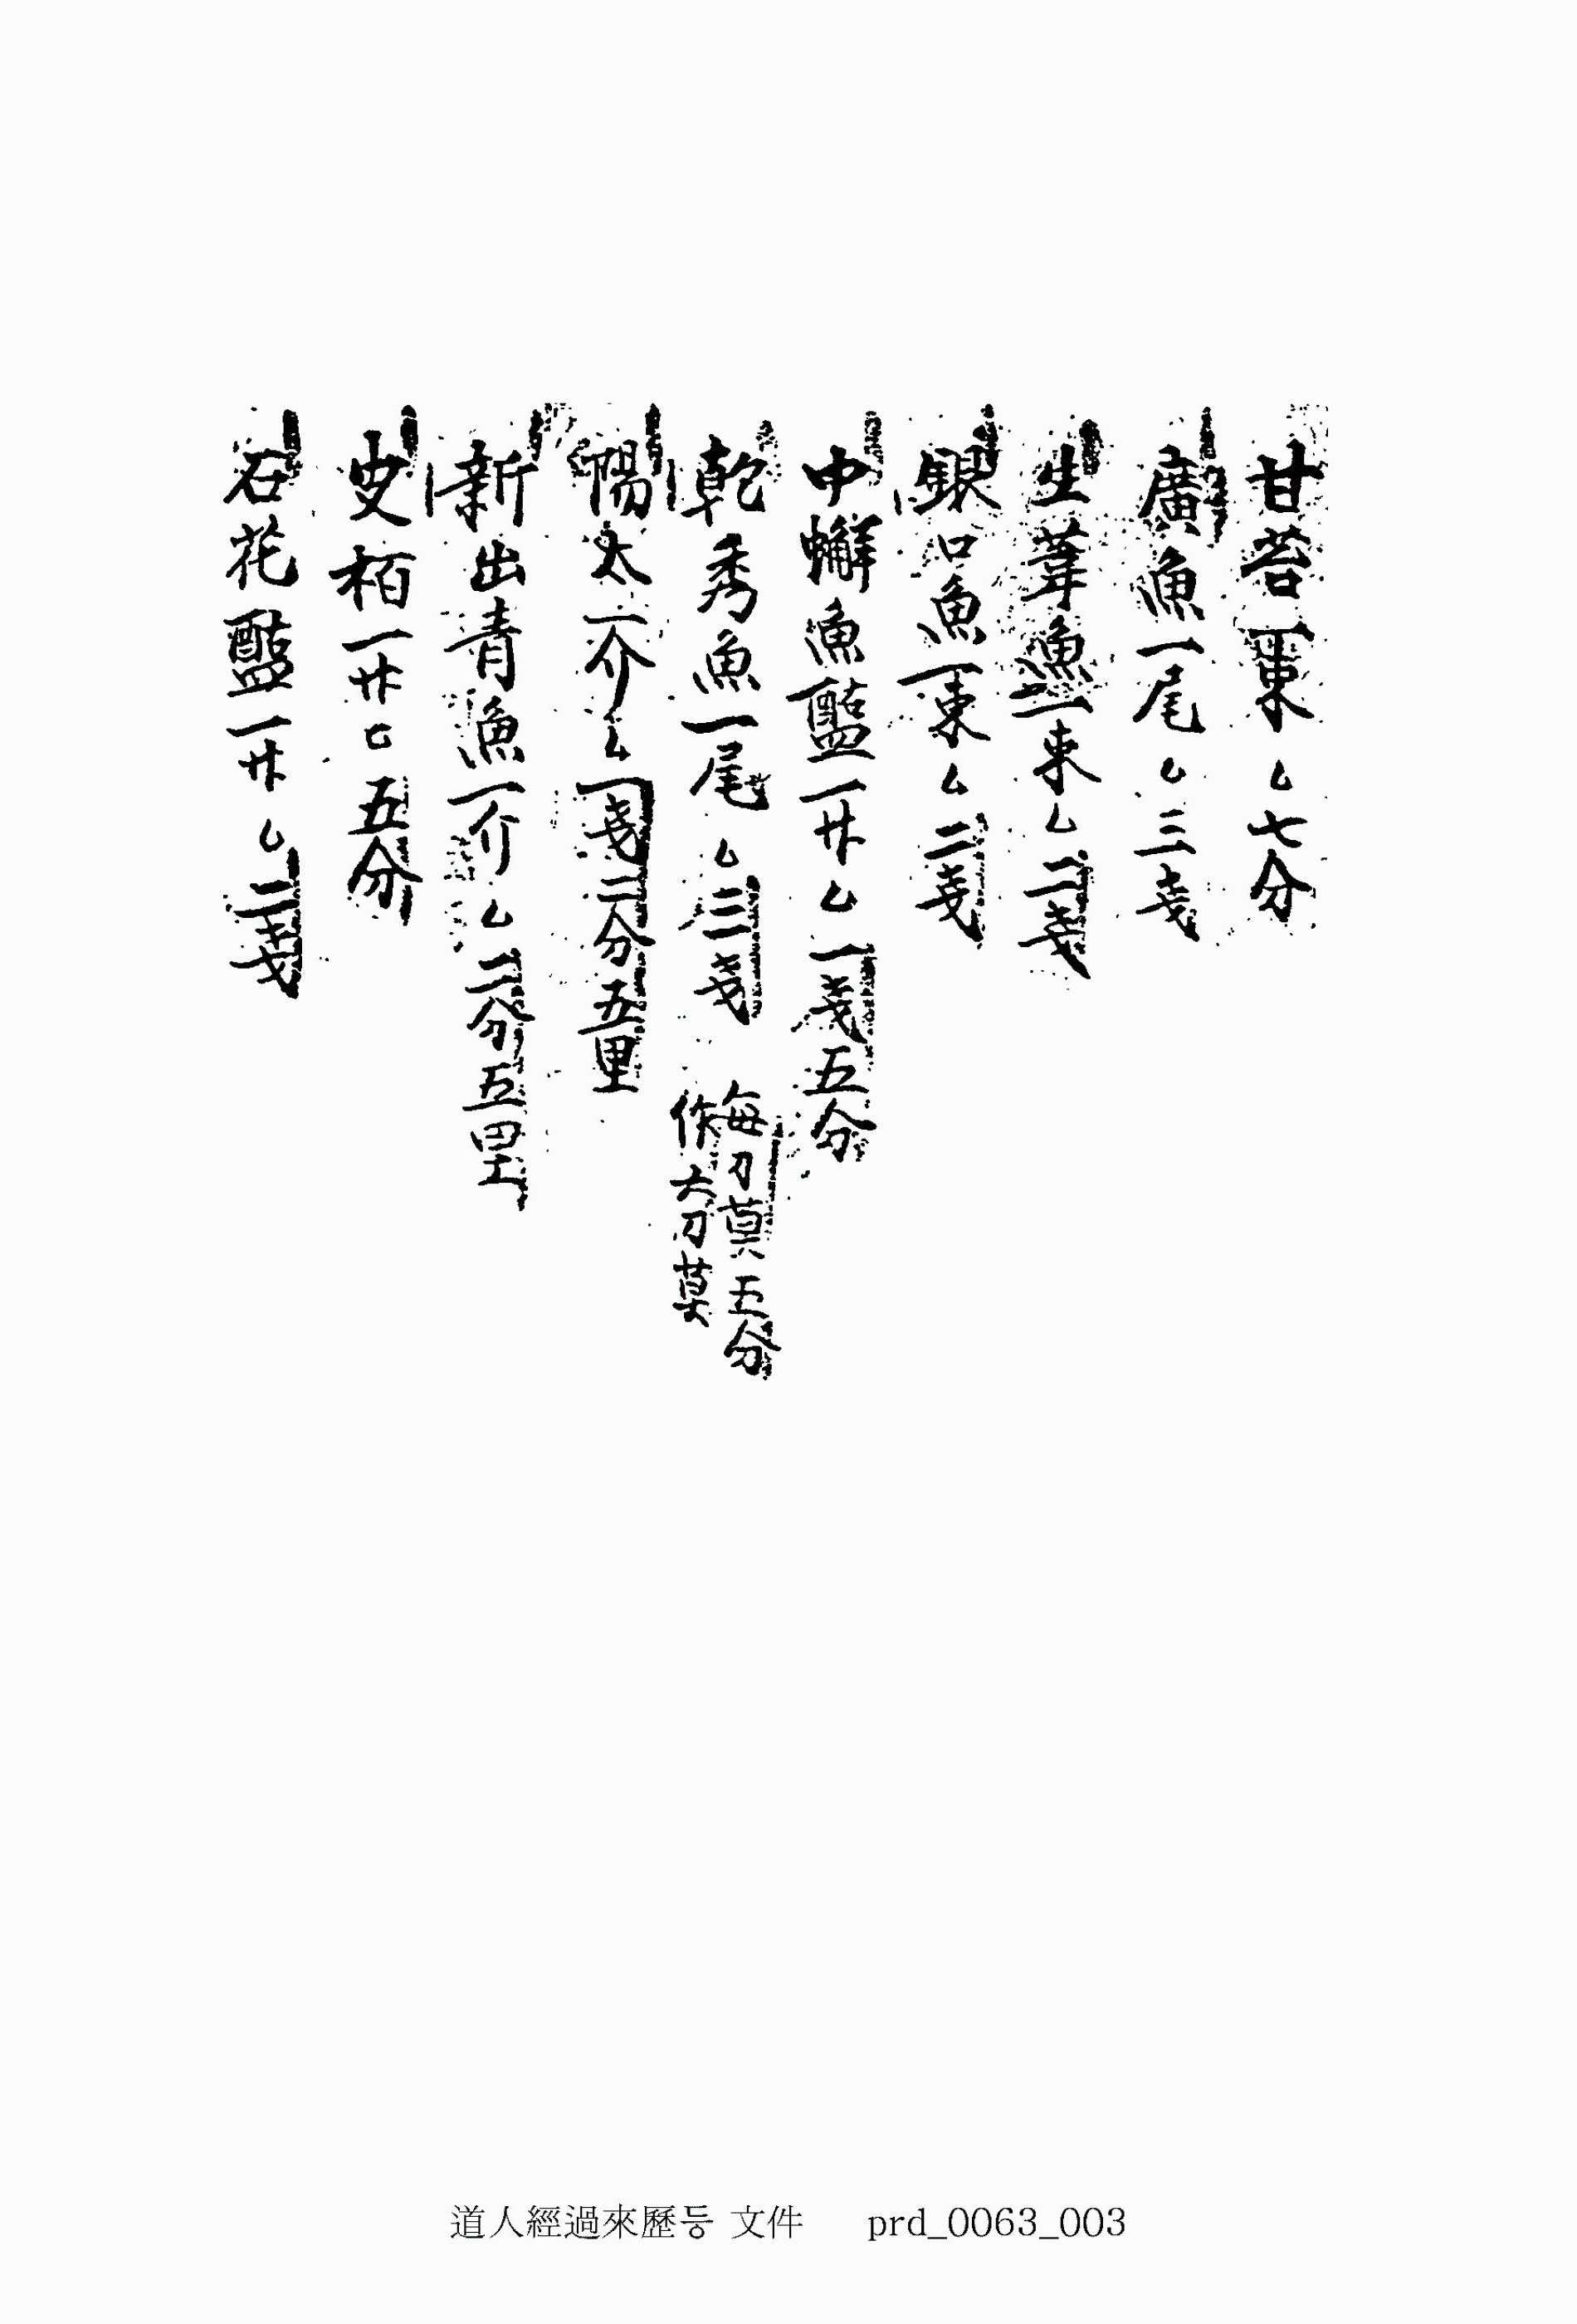 甘苔一束厶七分
廣魚一尾厶三戔
生葦魚一束厶二戔
銀口魚一束厶二戔
中蠏魚醢一升厶一戔五分
乾秀魚一尾厶三戔 每刀莫五分
作六刀莫
太一介厶一戔二分五里
新出青魚一介厶二分五里
皮栢一升厶五分
石花醢一升厶二戔
道人經過來歷등 文件 prd_0063_003